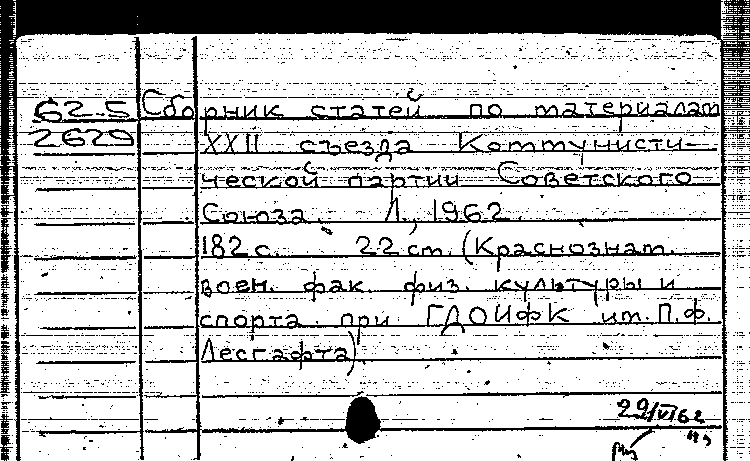 62-5 Сборник статей по материалам
2629 XXII съезда Коммунисти-
ческой партии Советского
Союза. Л., 1962.
182 с. 22 см. (Краснознам.
воен. фак. физ. культуры и
спорта при ГДОИФК им. П.Ф.
Лесгафта)
29/VI 62